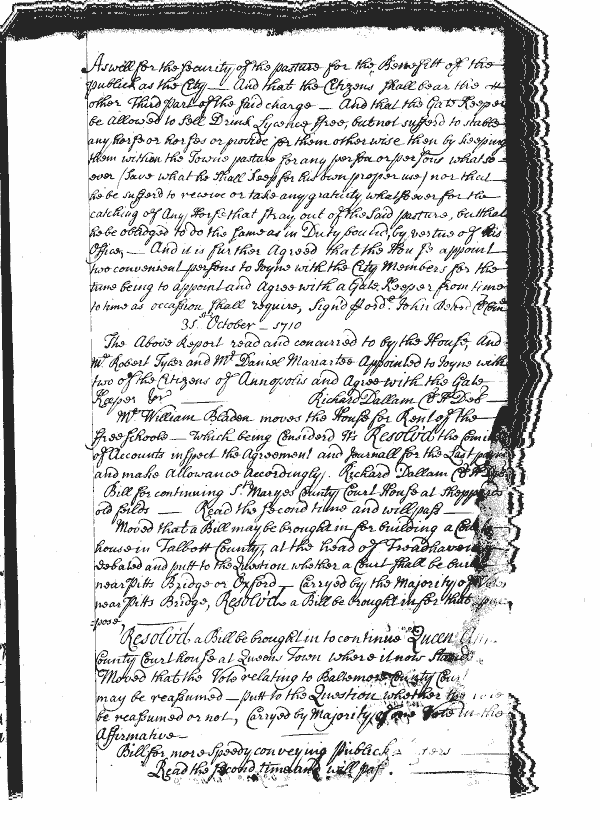 As well for the security of the pasture for the Benefitt of the
publick as the City — And that the Citizens shall bear the
other Third part of the said charge — And that the Gate Keeper
be allowed to sell Drink Lycence free, but not sufferd to stable
any horse or horses or provide for them otherwise then by keeping
them within the Towns pasture for any person or persons whatso
ever (save what he shall keep for his own proper use) nor that
he be sufferd to receive or take any gratuity whatsoever for the
catching of Any Horse that stray out of the said pasture, but that
he be obliedged to do the same as in Duty bound, by vertue of his
Office, — And it is further Agreed that the House appoint
two convenient persons to Joyne with the City Members for the
time being to appoint and Agree with a Gate Keeper from time
to time as occassion shall require, Signd p ordr. John
31st October — 1710
The Above Report read and concurred to by the House, And
Mr. Robert Tyler and Mr. Daniel Mariartee Appointed to Joyne with
two of the Citizens of Annopolis and Agree with the Gate
Keeper — Richard Dallam Cl H Del
Mr William Bladen moves the House for Rent of the
free schoole — which being Considerd Its Resolvd the
of Accounts inspect the Agreement and Journall for the Last
and make Allowance accordingly. Richard Dallam Cl H
Bill for continuing St Maryes County Court House at sheppards
old feilds — Read the second time and will pass —
Moved that a Bill may be brought in for building a
house in Talbott County, at the head of Treadhaven
debated and putt to the Question whether a Court shall be
near Pitts Bridge or Oxford — Carryed by the Majority of
near Pitts Bridge, Resolvd a Bill be brought in for that
pose
Resolvd a Bill be brought in to continue Queen
County Court house at Queens Town where it now stands
Moved that the Vote relating to Baltemore County
may be reassumed — putt to the Question whether
be reassumed or not, Carryed by Majority of one Vote in the
Affirmative —
Bill for more speedy conveying Publick
Read the second time and will pass